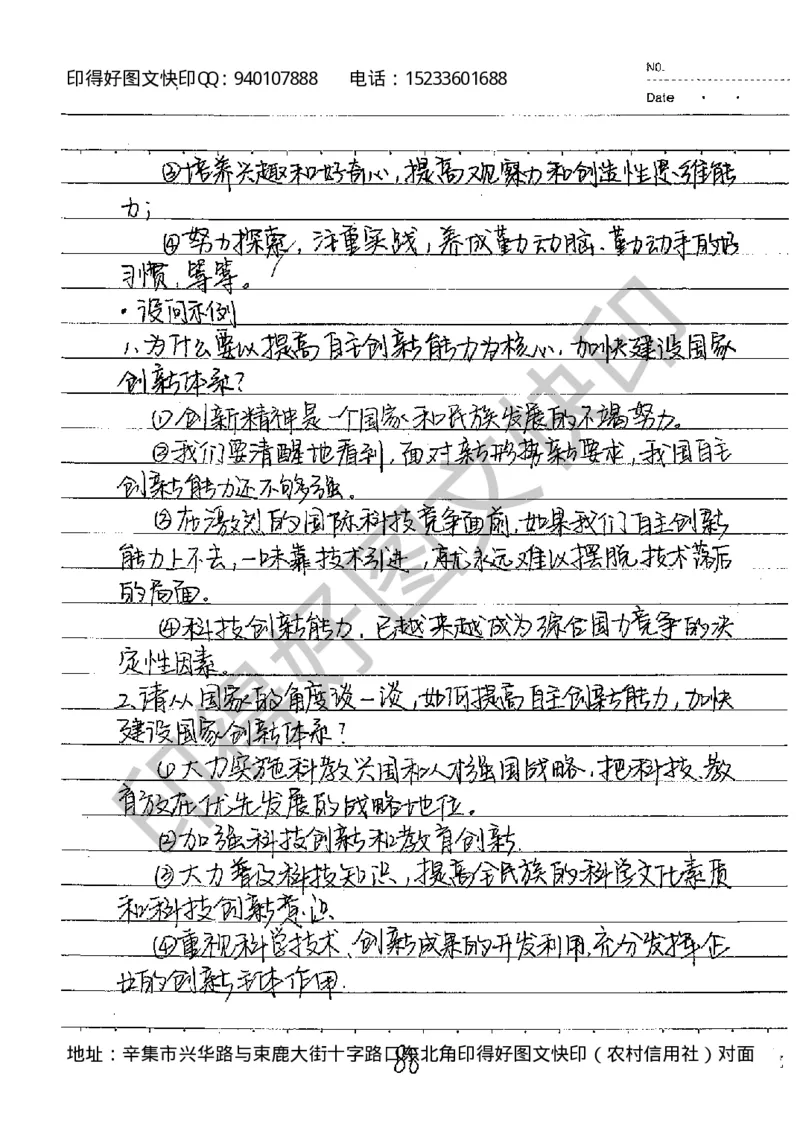 印得好图文快印QQ：940107888　电话：15233601688
NO.
Date
③培养兴趣和好奇心，提高观察力和创造性思维能
力；
④努力探索，注重实战，养成勤动脑、勤动手的好
习惯，等等。
·设问示例
1、为什么要以提高自主创新能力为核心，加快建设国家
创新体系？
①创新精神是一个国家和民族发展的不竭努力。
②我们要清醒地看到，面对新形势新要求，我国自主
创新能力还不够强。
③在激烈的国际科技竞争面前，如果我们自主创新
能力上不去，一味靠技术引进，就永远难以摆脱技术落后
的局面。
④科技创新能力，已越来越成为综合国力竞争的决
定性因素。
2、请从国家的角度谈一谈，如何提高自主创新能力，加快
建设国家创新体系？
①大力实施科教兴国和人才强国战略，把科技、教
育放在优先发展的战略地位。
②加强科技创新和教育创新.
③大力普及科技知识，提高全民族的科学文化素质
和科技创新意识.
④重视科学技术、创新成果的开发利用，充分发挥企
业的创新主体作用.
地址：辛集市兴华路与束鹿大街十字路口东北角印得好图文快印（农村信用社）对面
88
印得好图文快印